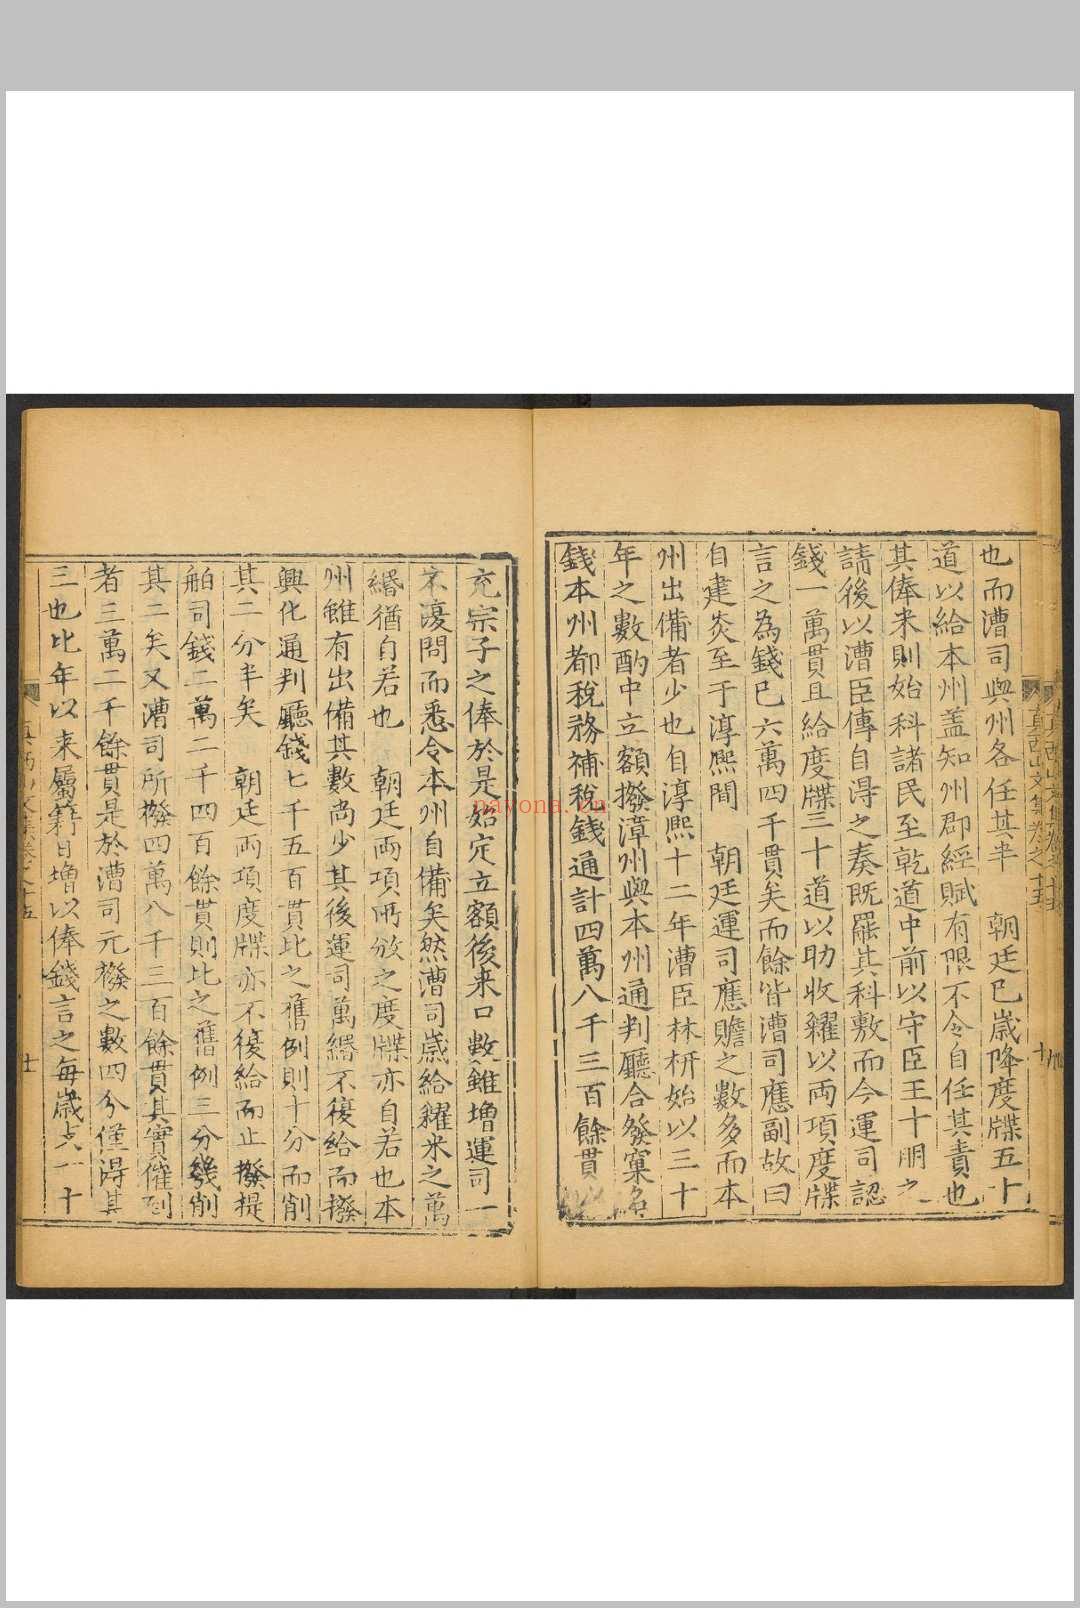 也而漕司與州各任其半　朝廷已嵗降度牒五十
道以給本州盖知州郡經賦有限不令自任其責也
其俸米則始科諸民至乾道中前以守臣王十朋之
請後以漕臣傅自淂之奏旣罷其科敷而今運司認
錢一萬貫且給度牒三十　道以助收糴以両項度牒
言之為錢已六萬四千貫矣而餘皆漕司應副故曰
自建炎至于淳熈間　朝廷運司應贍之數多而本
州出備者少也自淳熈十二年漕臣林枅始以三十
年之數酌中立額撥漳州與本州通判廳合發窠名
錢本州都稅務補稅錢通計四萬八千三百餘貫
充宗子之俸於是始定立額後来口數雖増運司一
不濅問而悉令本州自備矣然漕司嵗給糴米之萬
緡猶自若也　朝廷両項所放之度牒亦自若也本
州雖有出備其數尚少其後運司萬緡不復給而撥
興化通判廳錢七千五百貫比之舊例則十分而削
其二分半矣　朝廷両項度牒亦不復給而止撥提
舶司錢二萬二千四百餘貫則比之舊例三分幾削
其二矣又漕司所撥四萬八千三百餘貫其實催到
者三萬二千餘貫是於漕司元撥之數四分僅淂其
三也比年以来屬籍日増以俸錢言之每嵗一十
真西山文集卷之十五
十
nayona.cn